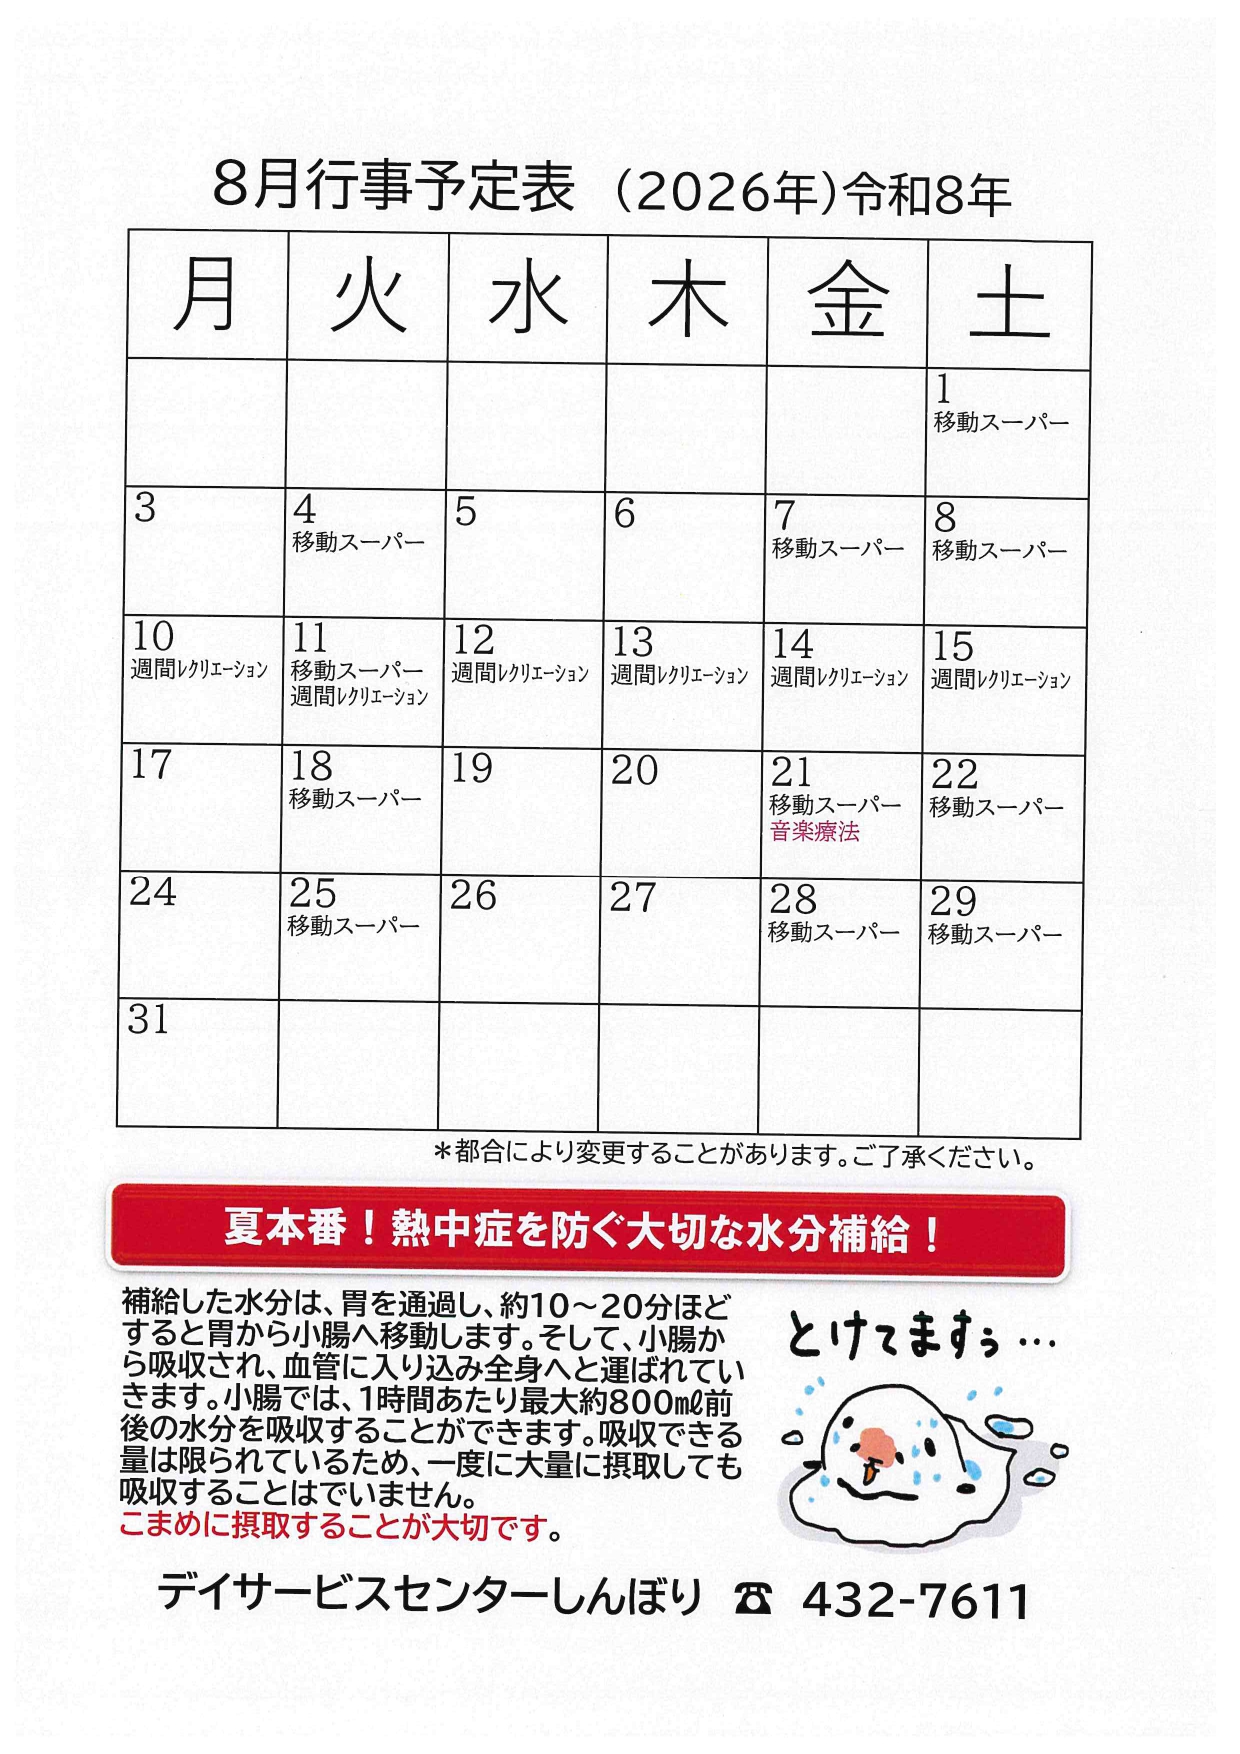 8月行事予定表 (2026年)令和8年
月 火 水 木 金 土
1
移動スーパー
3 4 5 6 7 8
移動スーパー 移動スーパー 移動スーパー
10 11 12 13 14 15
週間ﾚｸﾘｴｰｼｮﾝ 移動スーパー 週間ﾚｸﾘｴｰｼｮﾝ 週間ﾚｸﾘｴｰｼｮﾝ 週間ﾚｸﾘｴｰｼｮﾝ 週間ﾚｸﾘｴｰｼｮﾝ
週間ﾚｸﾘｴｰｼｮﾝ
17 18 19 20 21 22
移動スーパー 移動スーパー 移動スーパー
音楽療法
24 25 26 27 28 29
移動スーパー 移動スーパー 移動スーパー
31
＊都合により変更することがあります。ご了承ください。
夏本番！熱中症を防ぐ大切な水分補給！
補給した水分は、胃を通過し、約10～20分ほど
すると胃から小腸へ移動します。そして、小腸か
ら吸収され、血管に入り込み全身へと運ばれてい
きます。小腸では、1時間あたり最大約800㎖前
後の水分を吸収することができます。吸収できる
量は限られているため、一度に大量に摂取しても
吸収することはでいません。
こまめに摂取することが大切です。
とけてますぅ…
デイサービスセンターしんぼり ☎ 432-7611